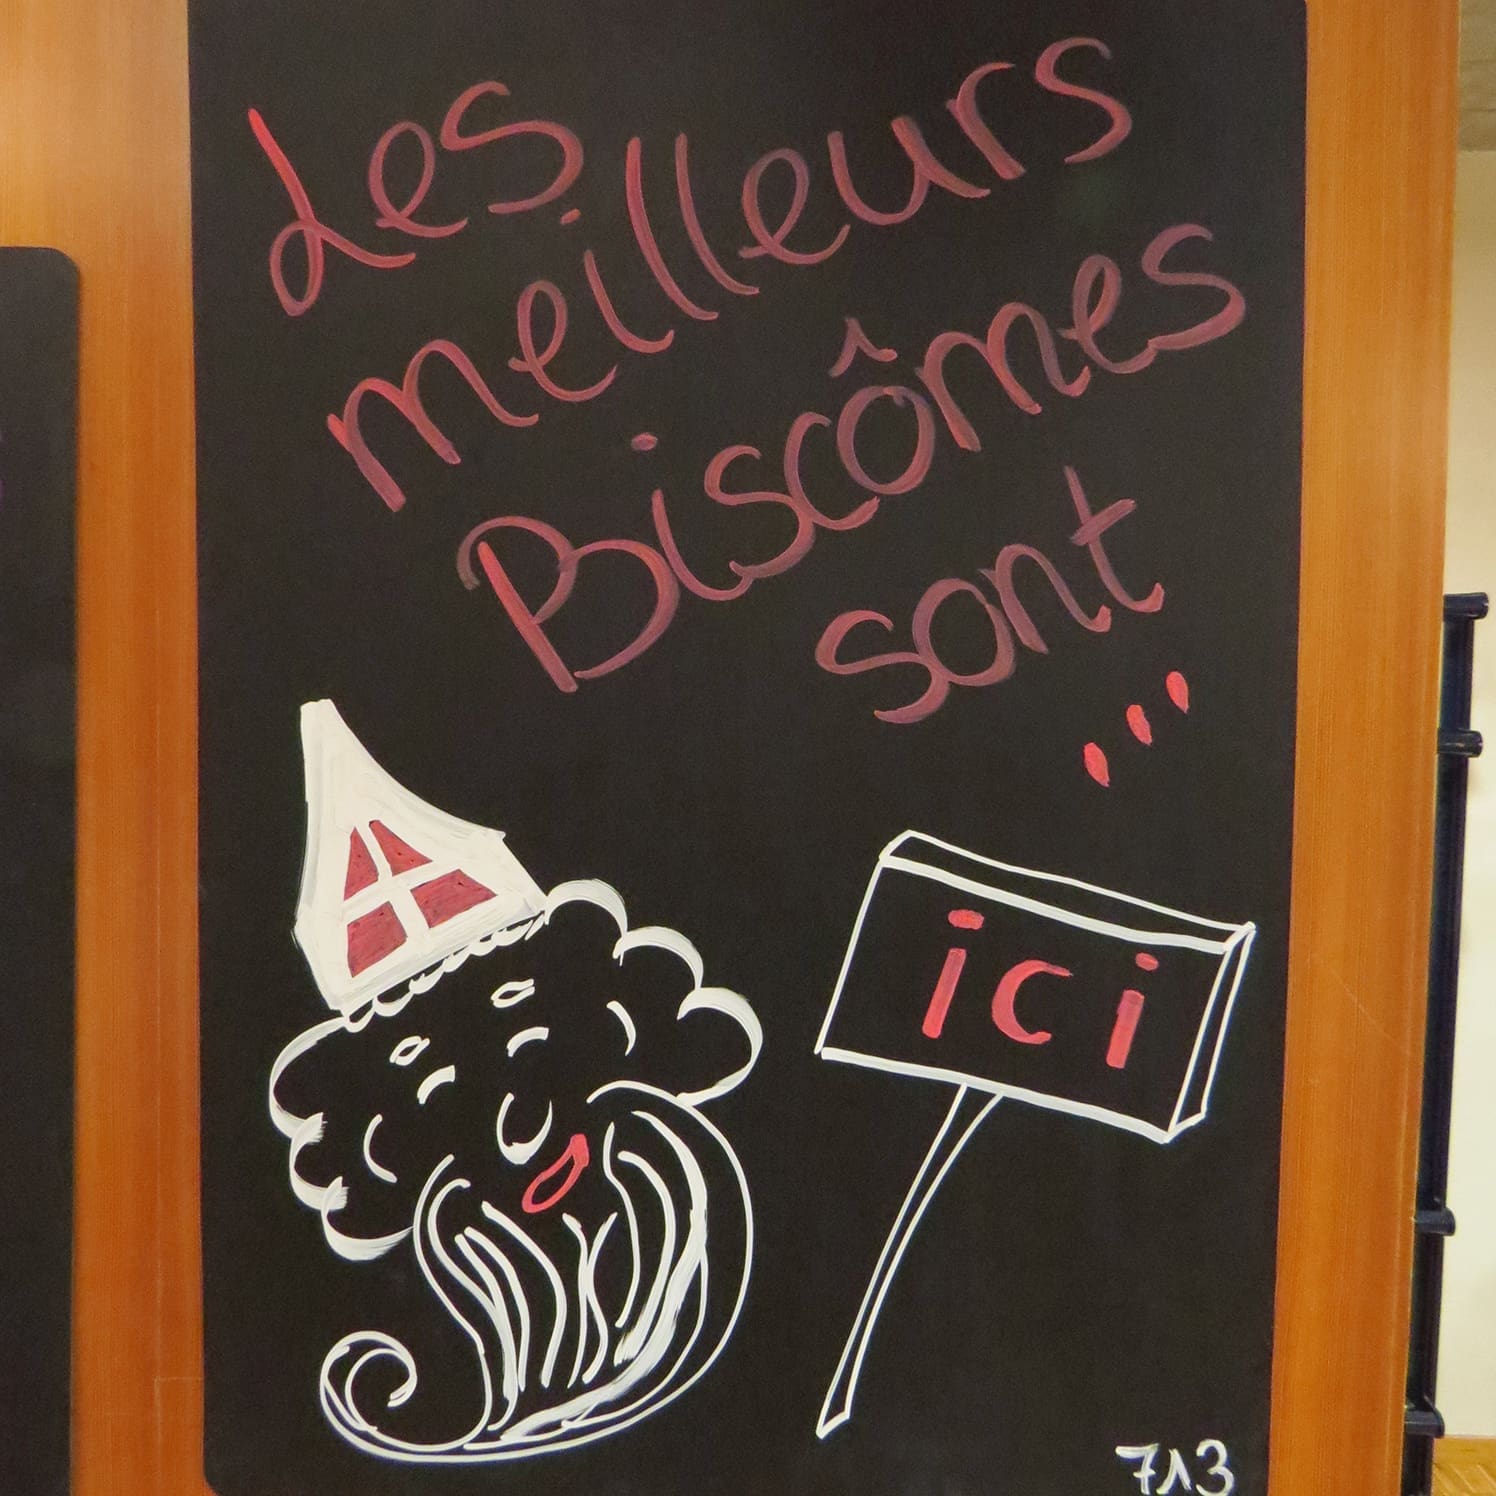 Les
meilleurs
Biscômes
sont
...
ici
713